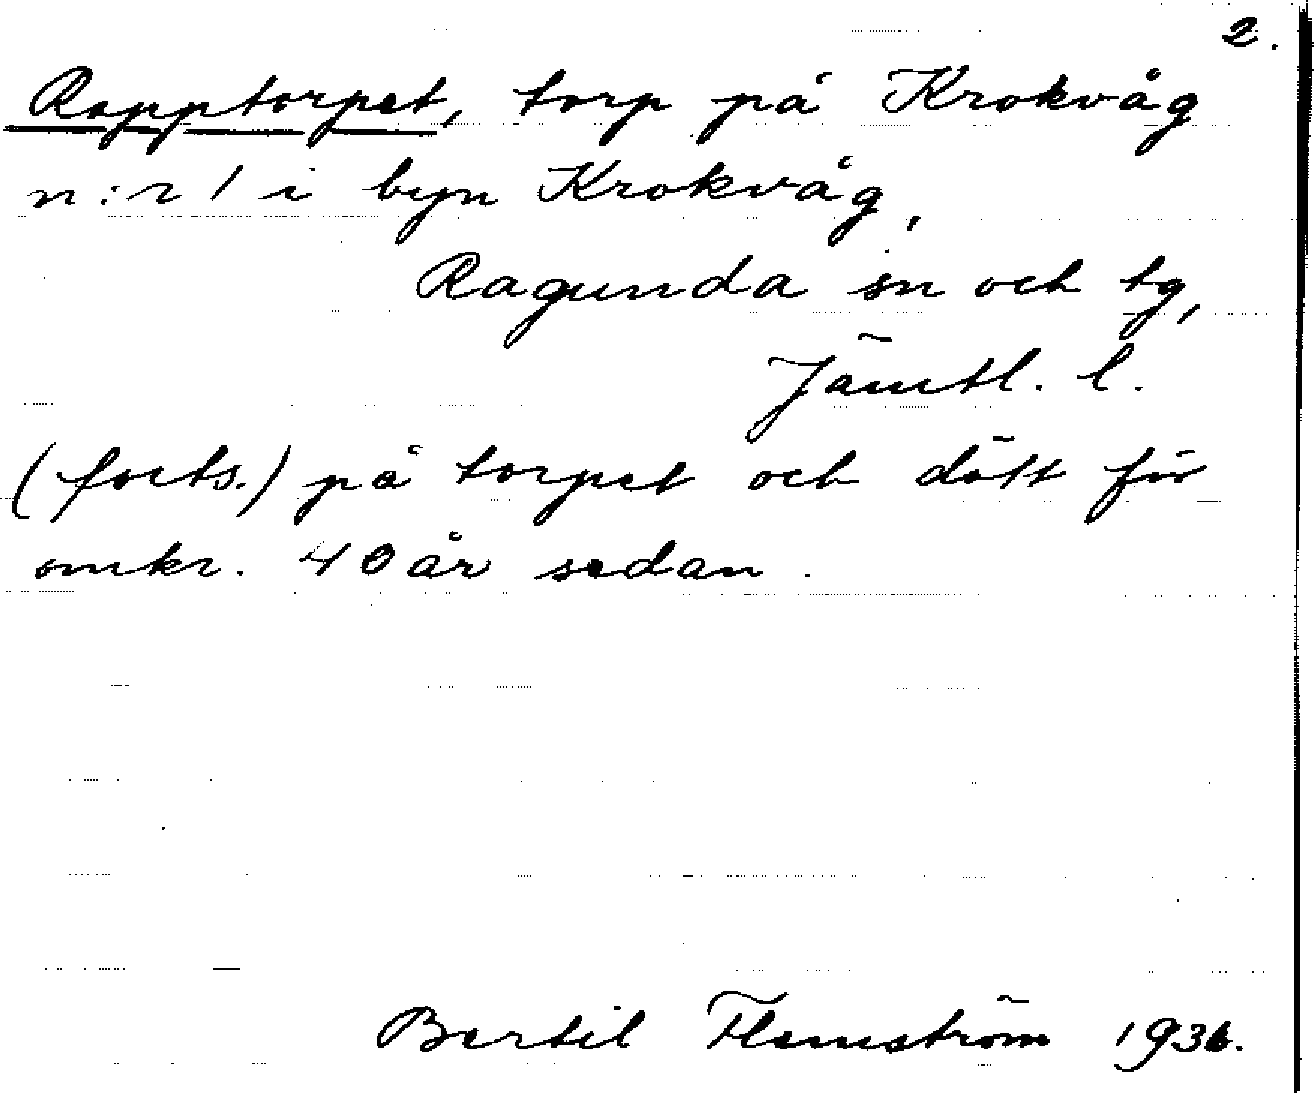 2.
Rapptorpet, torp på Krokvåg
n:r 1 i byn Krokvåg,
Ragunda sn och tg,
Jämtl. l.
(forts.) på torpet och dött för
omkr. 40 år sedan.
Bertil Flemström 1936.